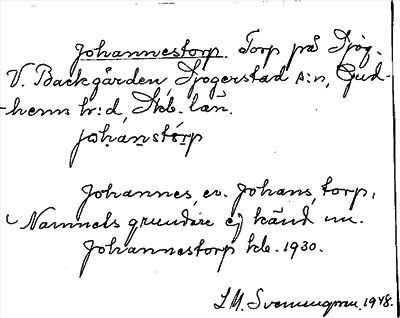 Johannestorp. Torp på Sjög.
V. Backgården, Sjogerstad s:n, Gud-
hems hr:d, Skb. län.
jɷhanstǿrp
Johannes, ev. Johans, torp.
Namnets grundare ej känd nu.
Johannestorp kb. 1930.
S.M. Svenungsson. 1948.